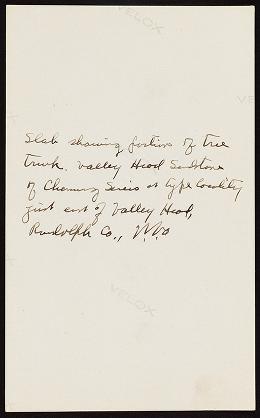 VELOX
Slab showing portions of tree
trunk. Valley Head Sandstone
of Chemung Series at type locality
just east of Valley Head,
Randolph Co., W.Va
VELOX